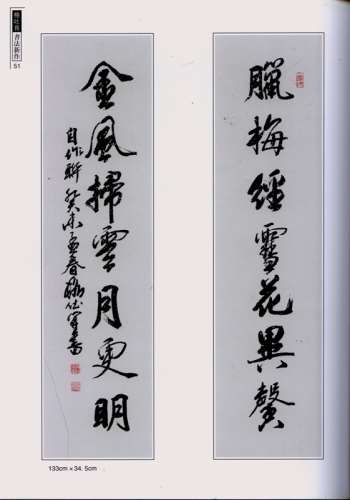 臘梅經雪花異馨
金風掃雲月更明
自作聯 癸未孟春
書法新作
51
133cm×34.5cm